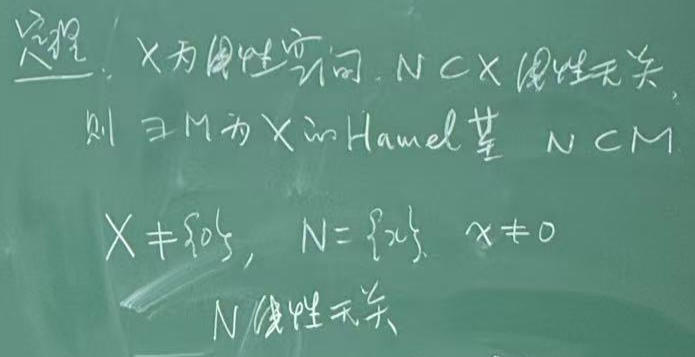 定理. X为线性空间. N⊂X线性无关,
则 ∃M为X的Hamel基 N⊂M
X≠{0}, N={x}. x≠0
N线性无关